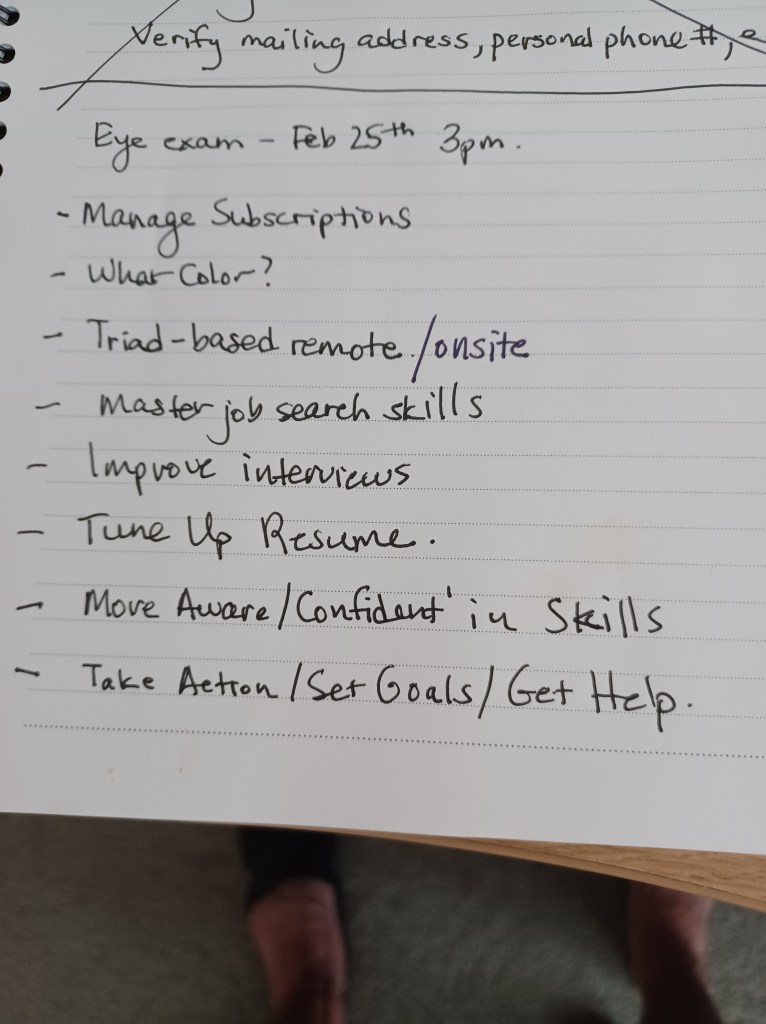 Verify mailing address, personal phone #, e
Eye exam - Feb 25th 3pm.
- Manage Subscriptions
- What Color?
- Triad-based remote /onsite
- Master job search skills
- Improve interviews
- Tune Up Resume.
- More Aware/Confident in Skills
- Take Action/Set Goals/Get Help.